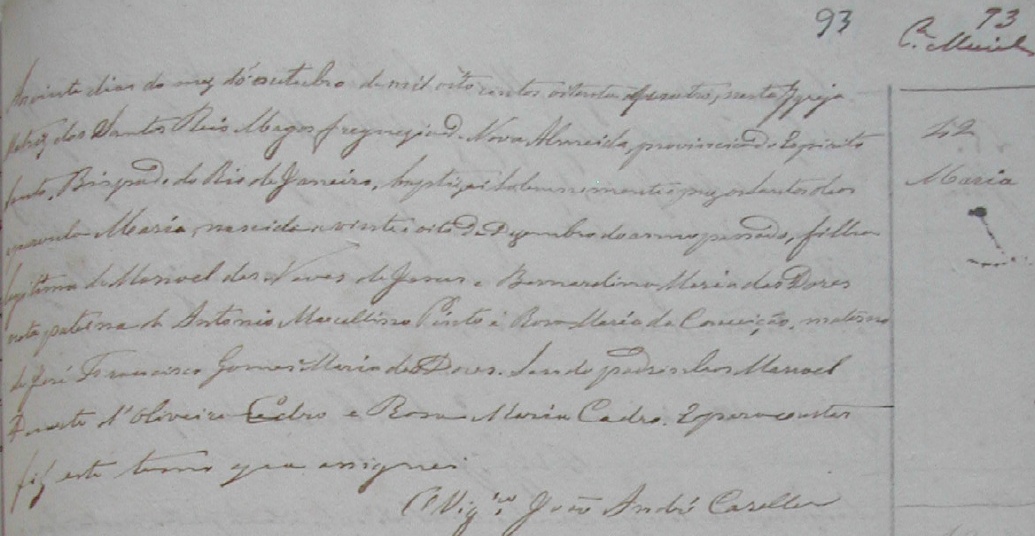 93
93
Cª Maciel
Aos vinte dias do mez de outubro de mil oito centos oitenta e quatro, nesta Igreja
Matriz dos Santos Reis Magos freguezia de Nova Almeida, provincia do Espirito
Santo, Bispado do Rio de Janeiro, baptizei solemnemente e puz os santos oleos
a parvula Maria, nascida a vinte e oito de Dezembro do anno passado, filha
legitima de Manoel das Neves de Jesus e Bernardina Maria das Dores
neta paterna de Antonio Marcellino Pinto e Rosa Maria da Conceição, materna
de José Francisco Gomes Maria das Dores. Sendo padrinhos Manoel
Duarte d'Oliveira Cadro e Rosa Maria Cadro. E para constar
fiz este termo que assignei.
O Vigrº João André Casella
42
Maria